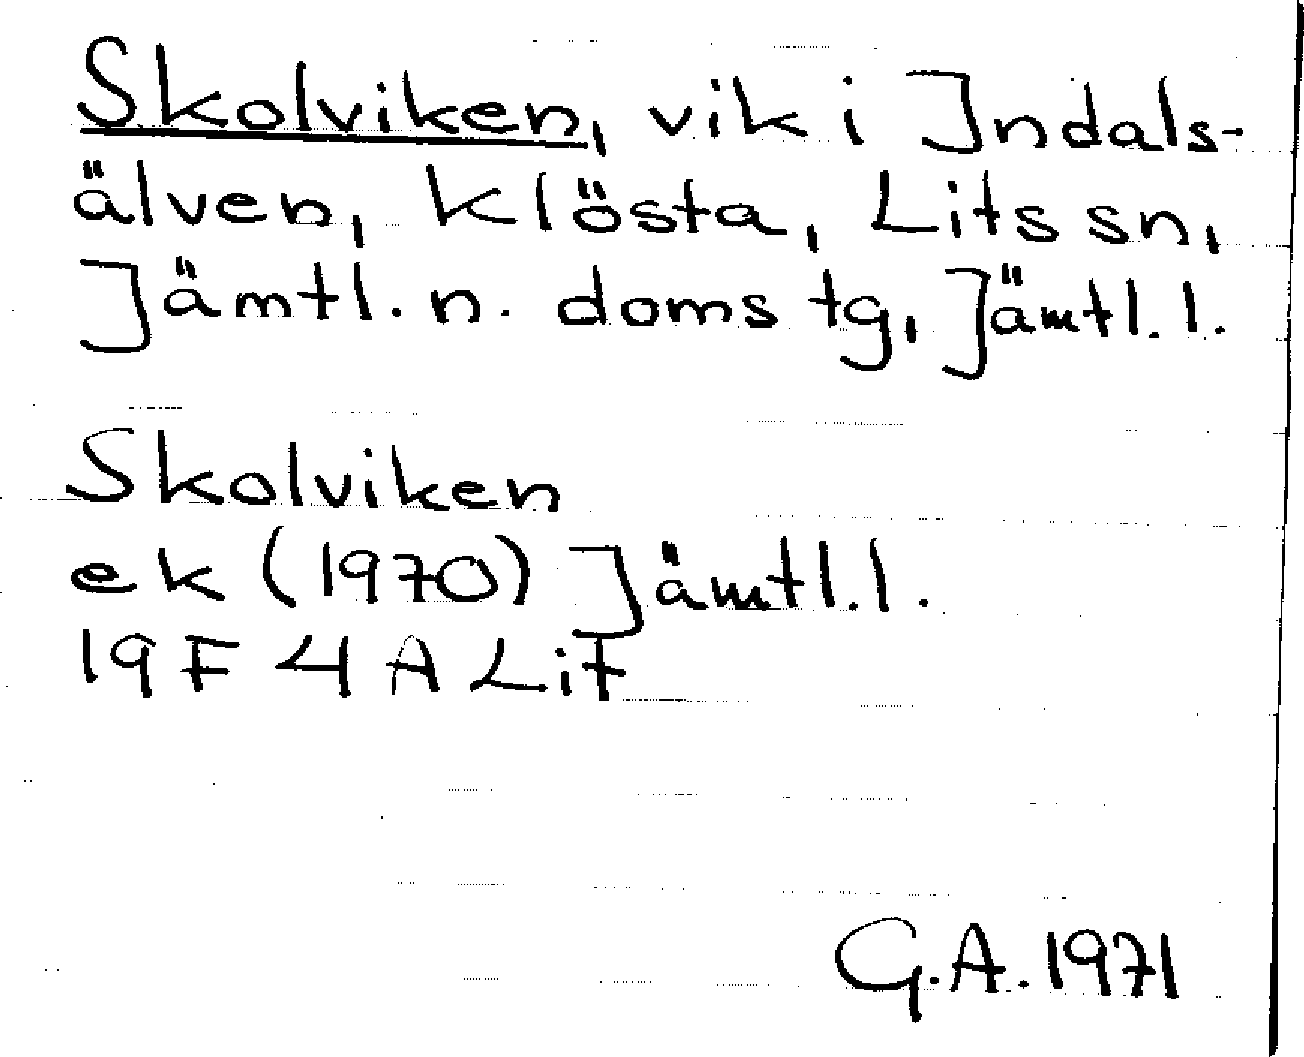 Skolviken, vik i Indals-
älven, Klösta, Lits sn,
Jämtl. n. doms tg, Jämtl. l.
Skolviken
ek (1970) Jämtl. l.
19F 4A Lit
G.A. 1971